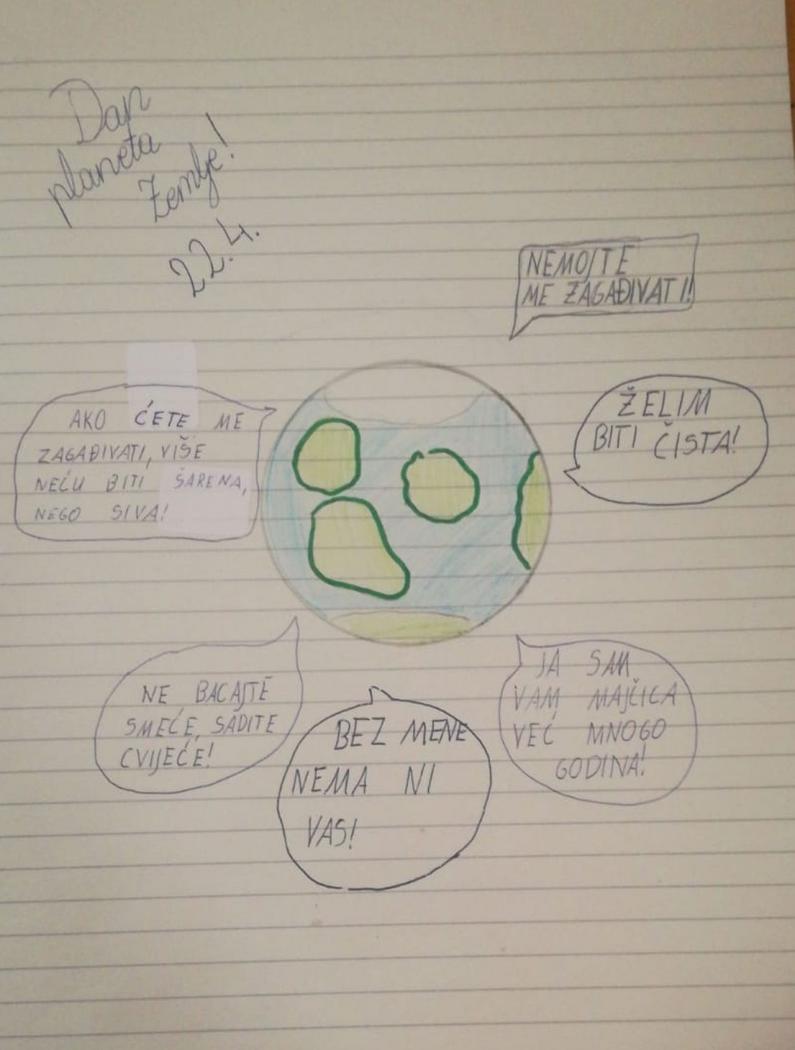 Dan
planeta
Zemlje!
22.4.
NEMOJTE
ME ZAGAĐIVATI!
AKO ĆETE ME
ZAGAĐIVATI, VIŠE
NEĆU BITI ŠARENA,
NEGO SIVA!
ŽELIM
BITI ČISTA!
NE BACAJTE
SMEĆE, SADITE
CVIJEĆE!
BEZ MENE
NEMA NI
VAS!
JA SAM
VAM MAJČICA
VEĆ MNOGO
GODINA!